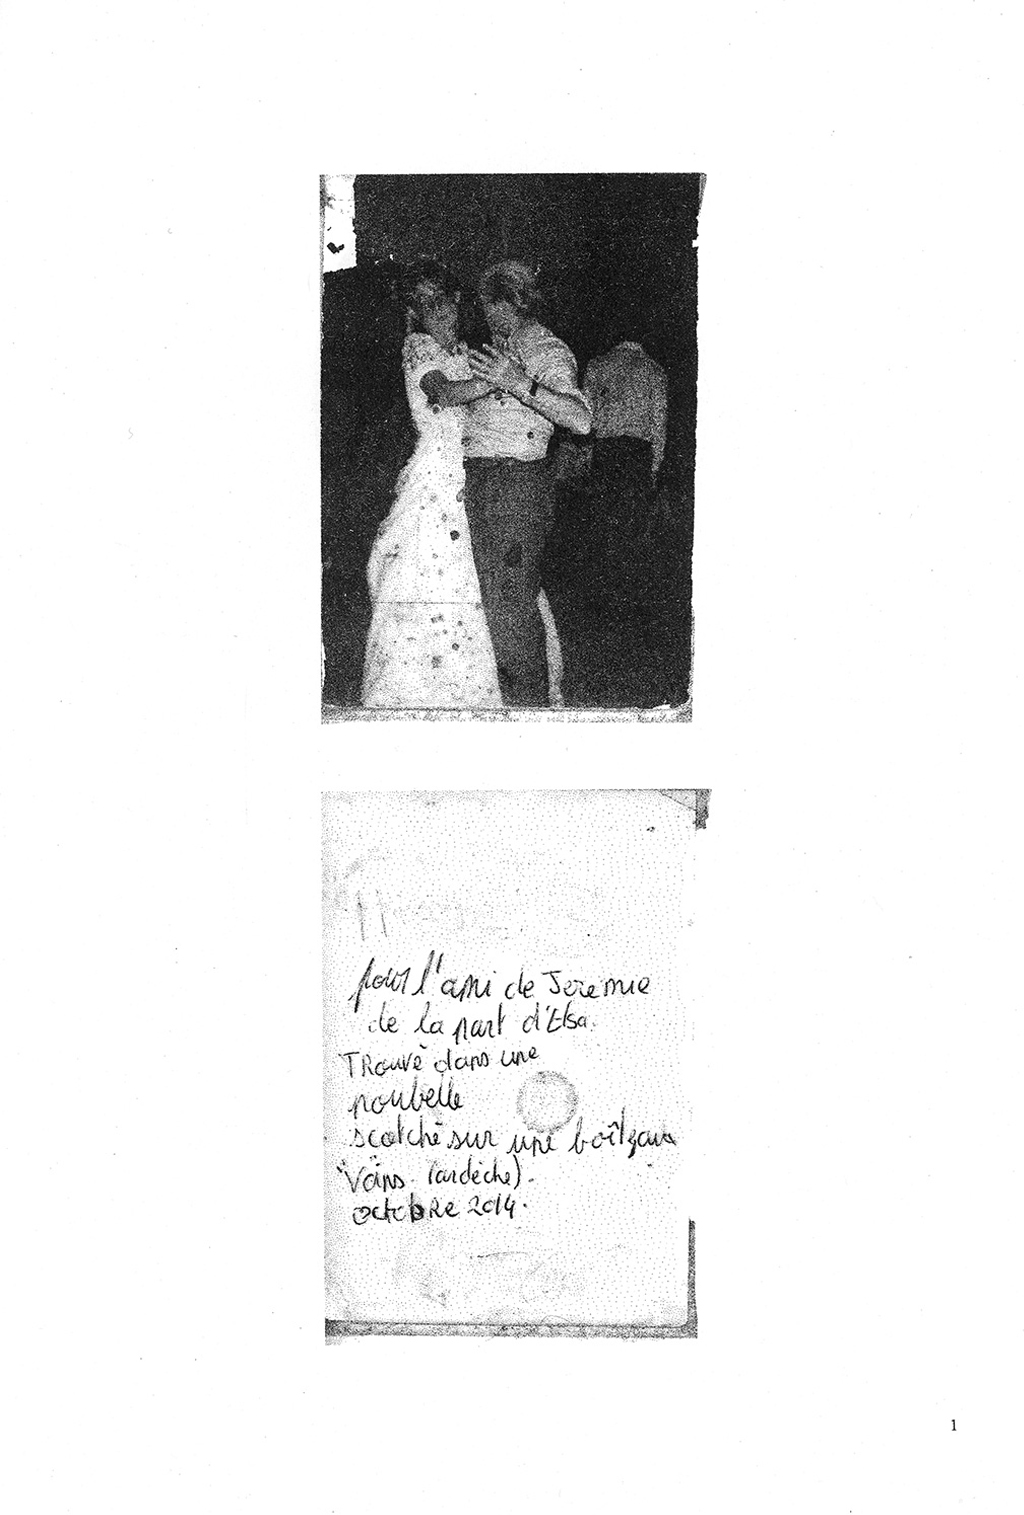 pour l'ami de Jeremie
de la part d'Elsa.
TRouvé dans une
poubelle
scotché sur une
Vans (ardèche).
octobRe 2014.
1